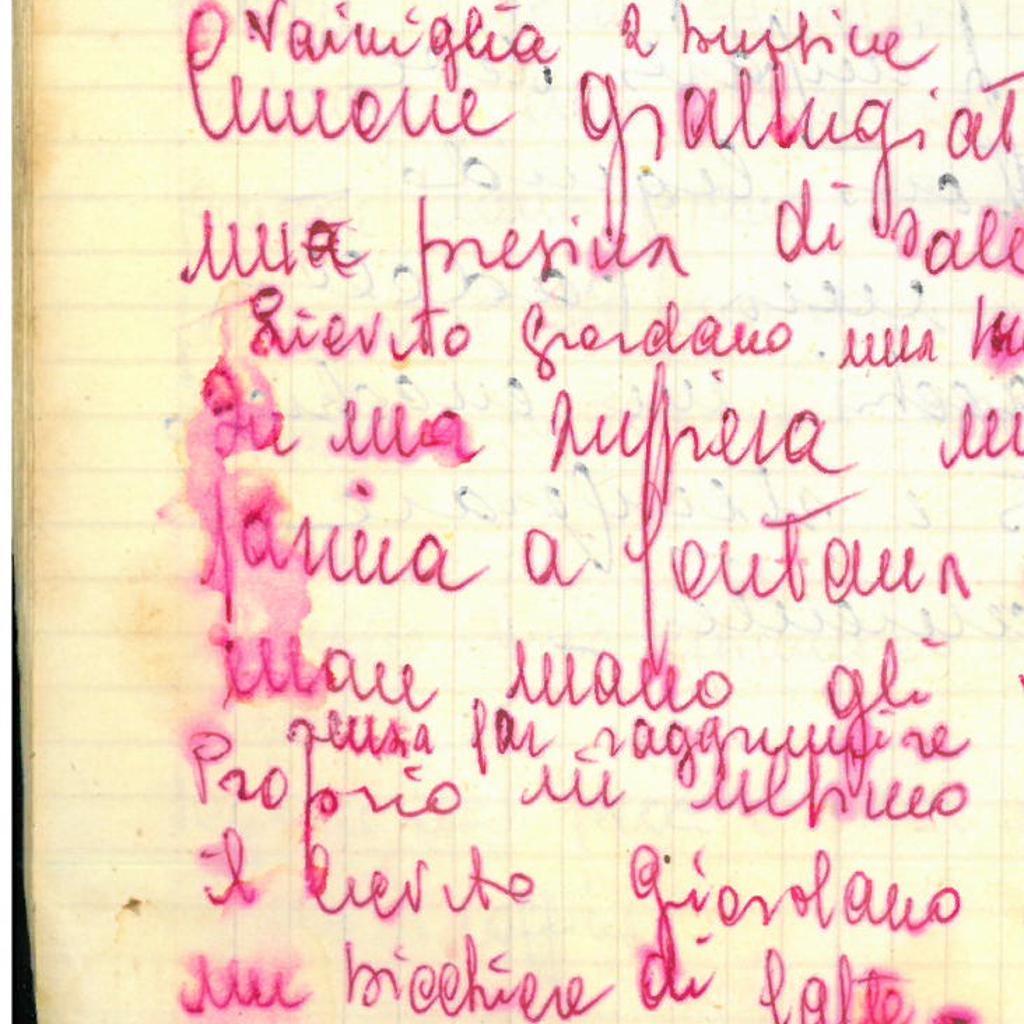 Vainiglia 2 bustine
Limone grattugiat
una presina di sale
Lievito Giordano una bu
In una zuppiera un
farina a fontana
man mano gli
senza far raggrumire
Proprio in ultimo
il lievito Giordano
un bicchiere di latte